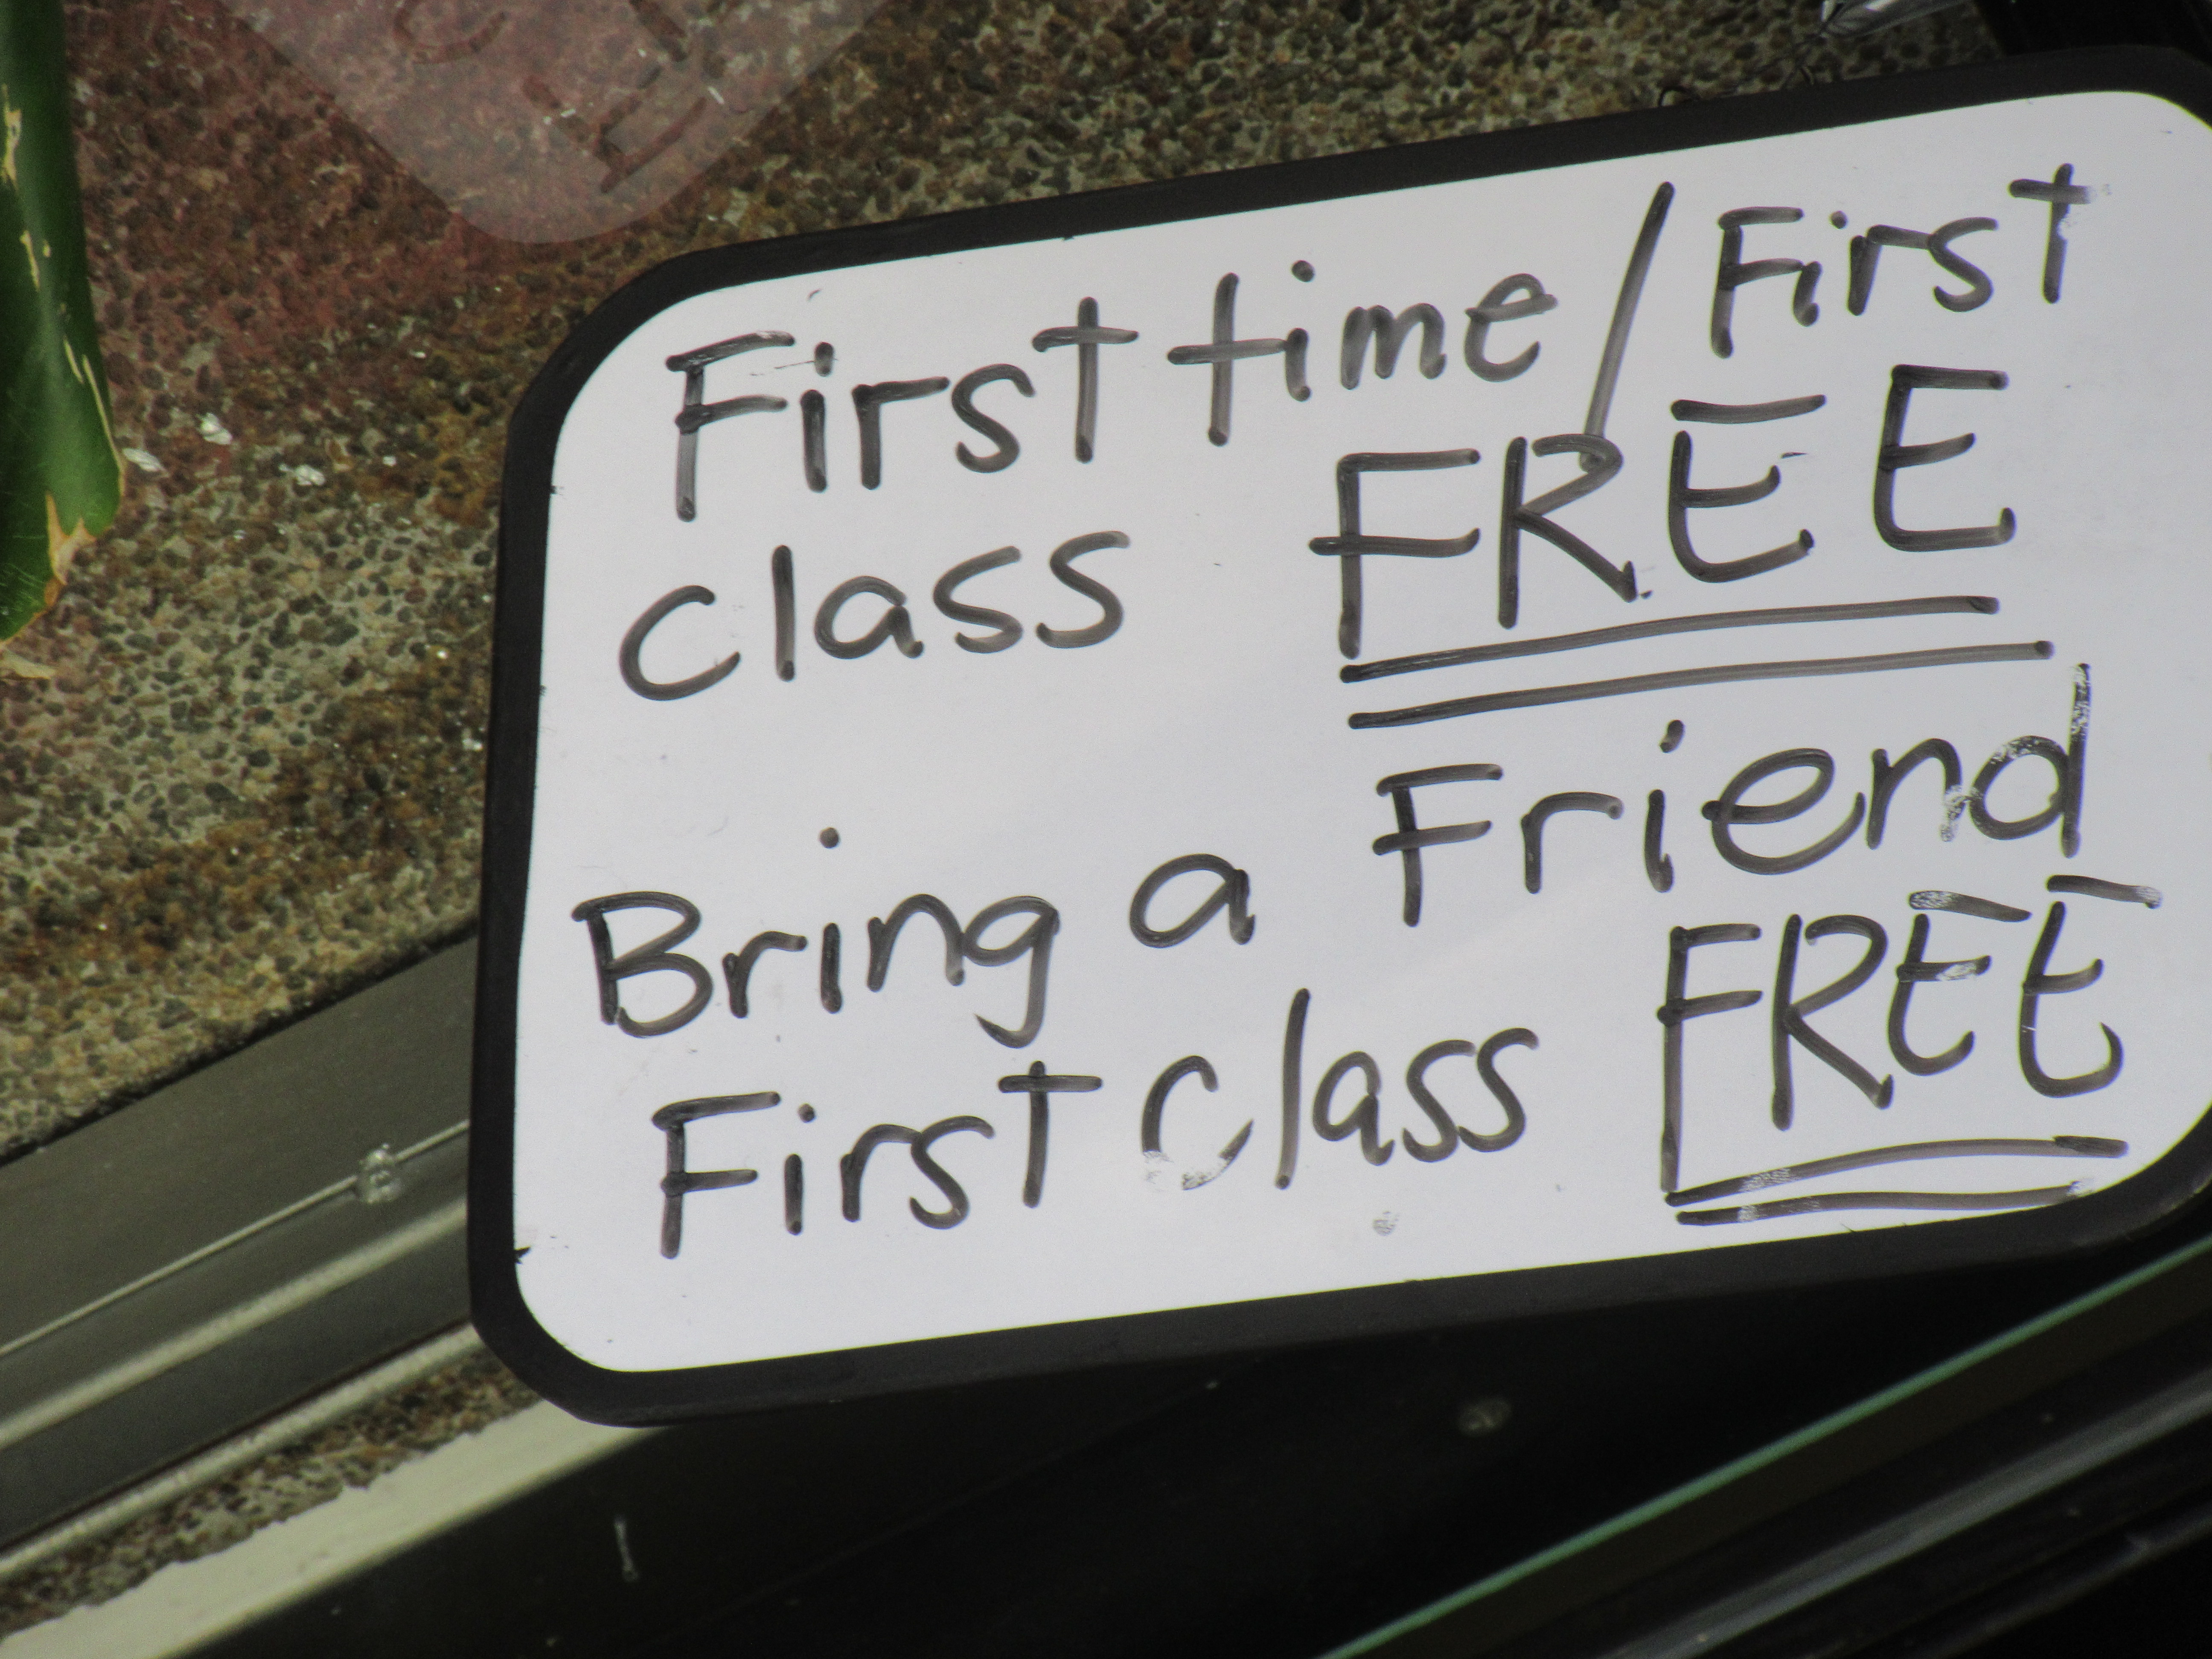 First time/First
class FREE
Bring a Friend
First class FREE